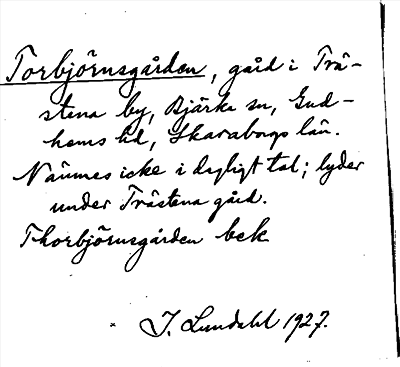 Torbjörnsgården, gård i Trä-
stena by, Bjärka sn, Gud-
hems hd, Skaraborgs län.
Nämnes icke i dagligt tal; lyder
under Trästena gård.
Thorbjörnsgården bek
J. Lundahl 1927.